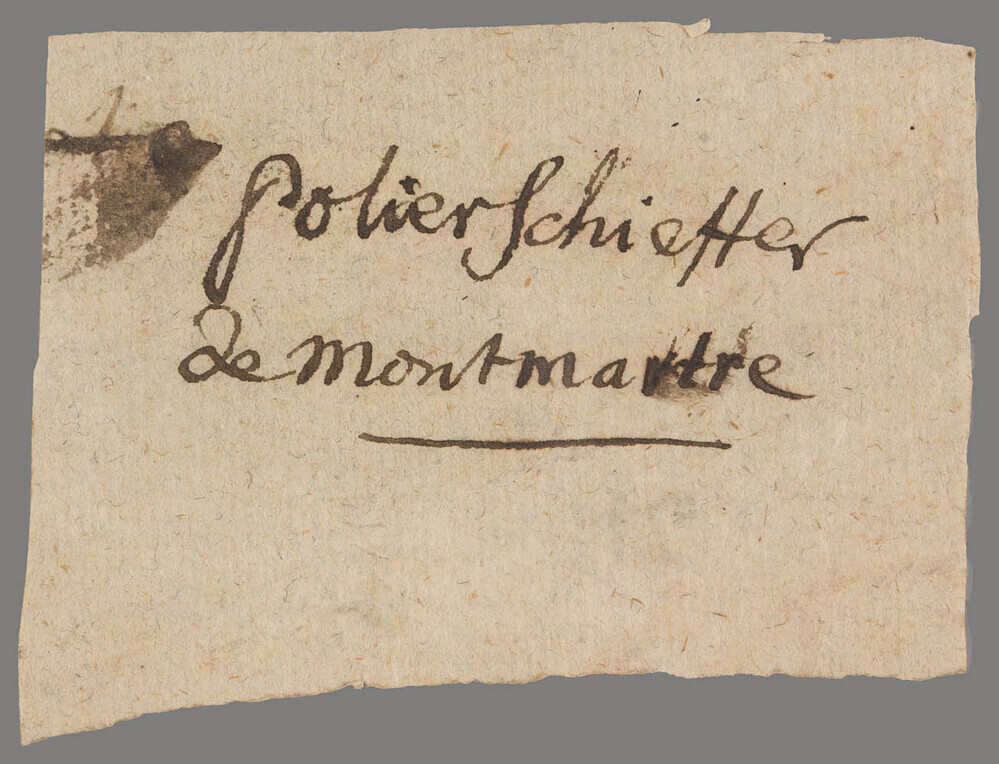 Polierschieffer
de montmartre